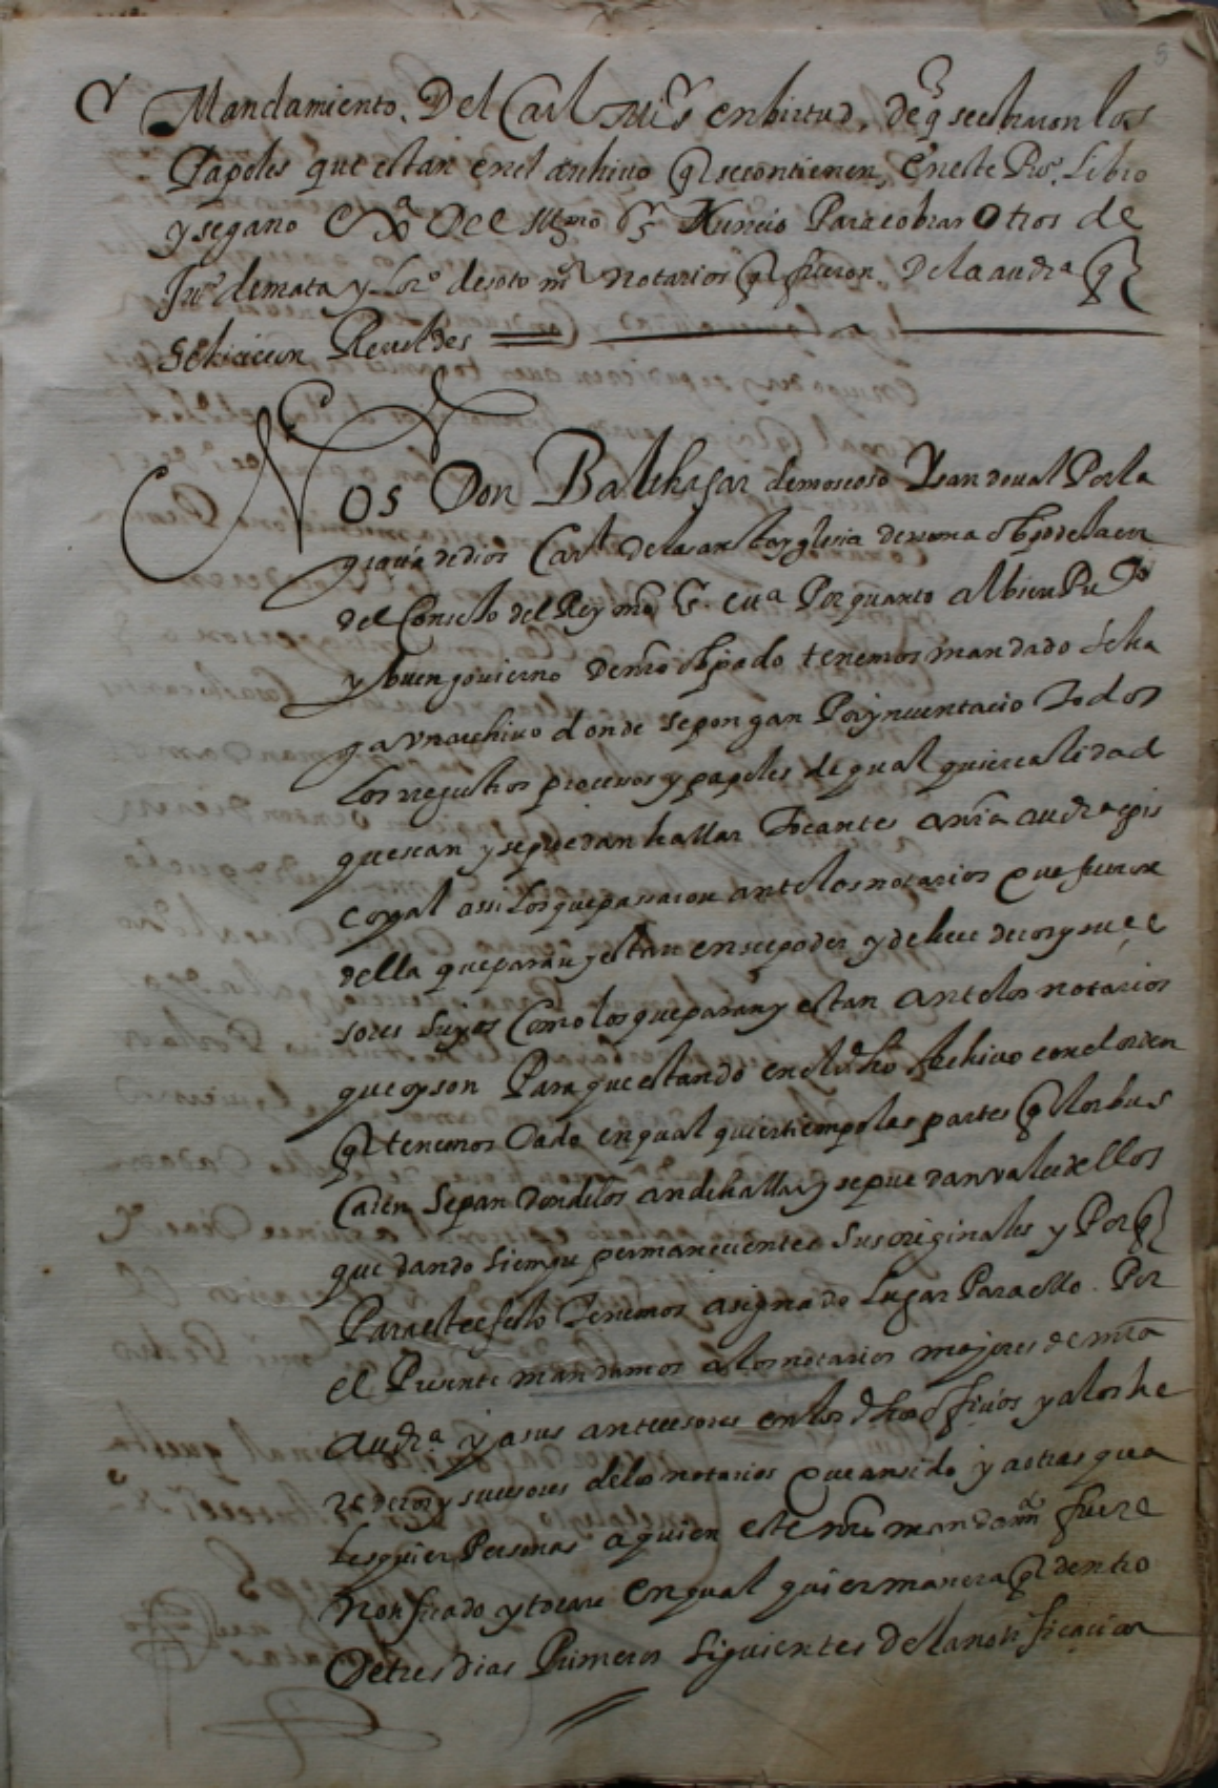 5
Mandamiento. Del Carl mi Sr en birtud. de q se echaron los
Papeles que estan en el archivo q se contienen, en este Pro. Libro
y se gano Del Illmo Sr Nuncio Para cobrar otros de
Juo de mata y Lorço de soto mor notarios q fueron. De la audia q
se hicieron Reveldes
Nos Don Balthasar de moscoso Y san doual Por la
graçia de dios Carl De la santa yglesia de rroma obpo de Jaen
del Consejo del Rey nro Sr. etta Por quanto al bien Puco
y buen gouierno de nro obpado tenemos mandado se ha
ga vn archiuo donde se pon gan Por ynuentario Todos
Los rregistros processos y papeles de qual quier calidad
que sean y se puedan hallar Tocantes a nra audia epis
copal assi Los que pasaron ante los notarios que fueron
della que paran y estan en su poder y de herederos y suçe
sores suyos Como los que paran y estan ante los notarios
que oy son Para que estando en el dho Archiuo con el orden
q tenemos Dado en qual quier tiempo las partes q los bus
Caren Sepan donde los an de hallar y se pue dan valer dellos
que dando siempre permaneçientes Sus originales y Porq
Para este efeto Tenemos asignado Lugar Para ello. Por
el Presente mandamos a los notarios majores de nra
audia. y a sus anteçesores en los dhos offiçios y a los he
rederos y suçesores de los notarios que an sido y a otras qua
Lesquier Personas a quien este nro mandamto fuere
notificado y tocare en qual quier manera q dentro
De tres dias Primeros Siguientes de la notificaçion